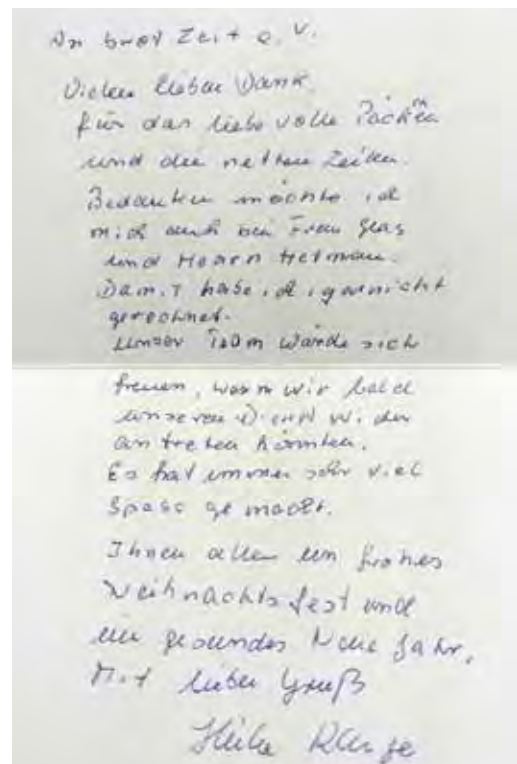 An brot Zeit e. V.
Vielen lieben Dank
für das liebevolle Päckchen
und die netten Zeilen.
Bedanken möchte ich
mich auch bei Frau Glas
und Herrn Hermann.
Damit habe ich garnicht
gerechnet.
Unser Team würde sich
freuen, wenn wir bald
unseren Dienst wieder
antreten könnten.
Es hat immer sehr viel
Spass gemacht.
Ihnen allen ein frohes
Weihnachtsfest und
ein gesundes Neue Jahr.
Mit lieber Gruß
Heike